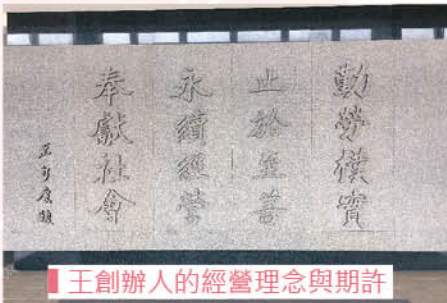 勤勞樸實
止於至善
永續經營
奉獻社會
王創辦人的經營理念與期許